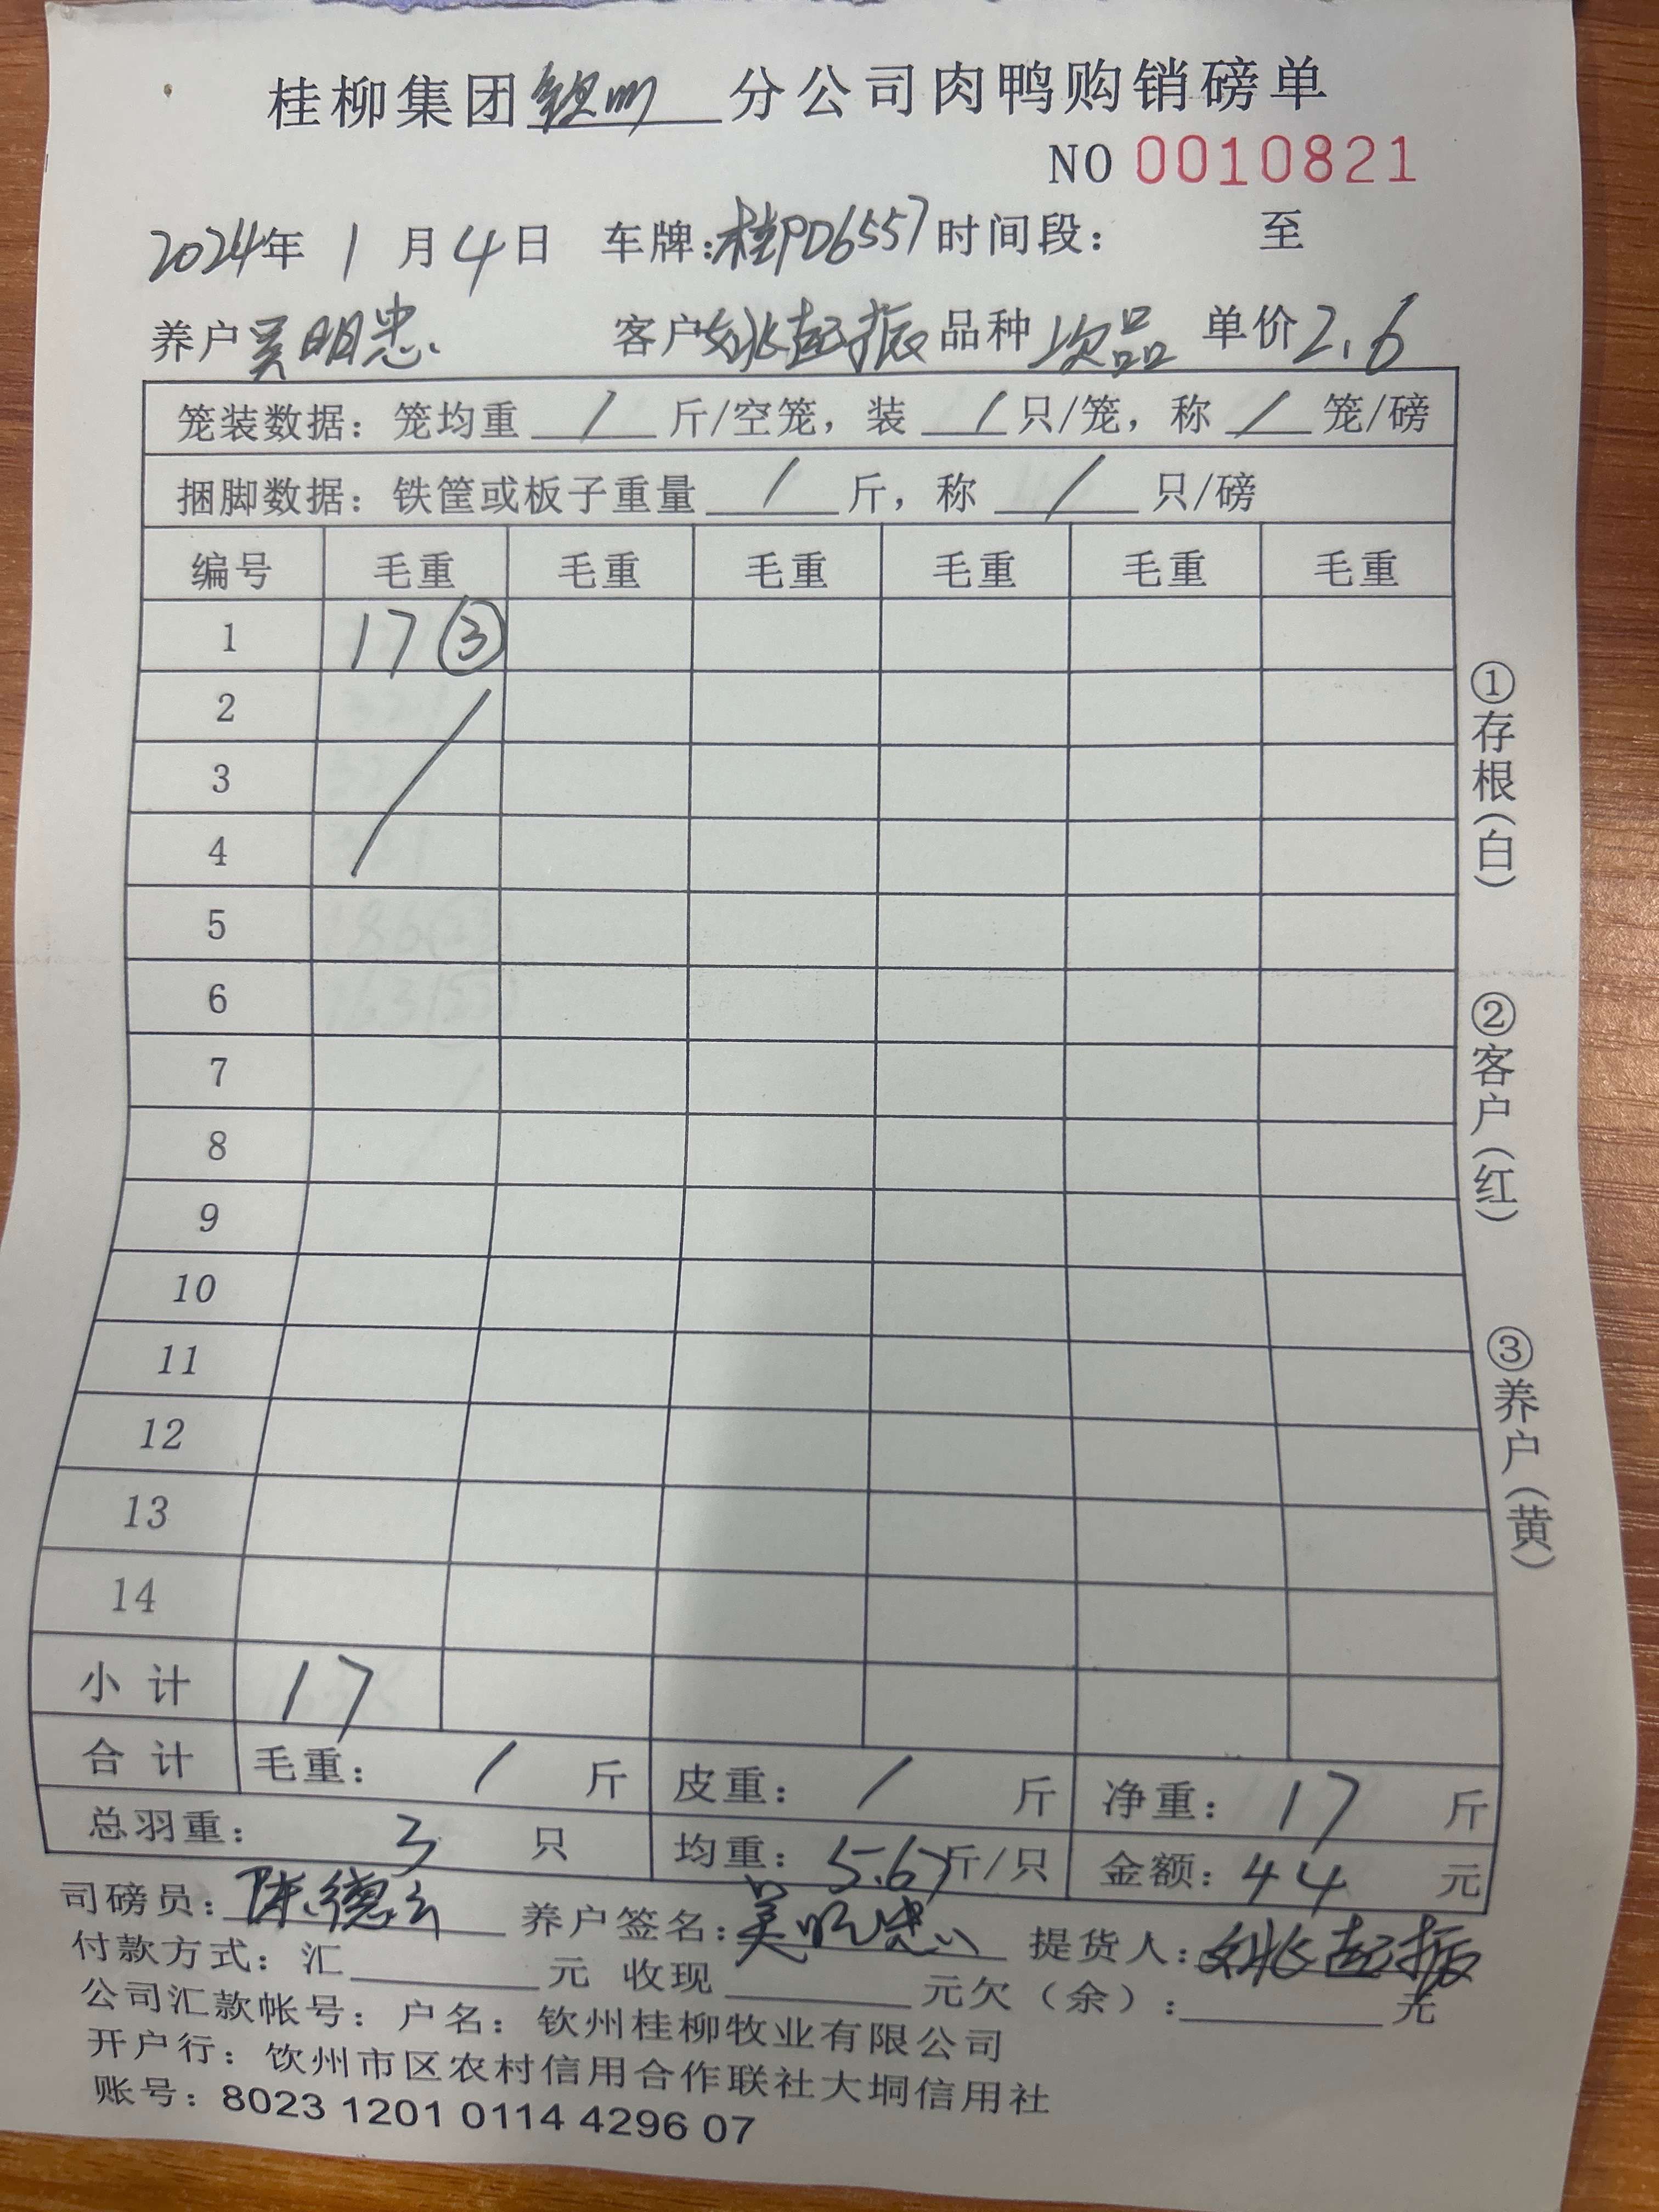 桂柳集团钦州分公司肉鸭购销磅单
NO 0010821
2024年 1 月 4 日 车牌:桂PD6557 时间段: 至
养户 吴明忠 客户 姚起振 品种 次品 单价 2.6
笼装数据: 笼均重 / 斤/空笼, 装 / 只/笼, 称 / 笼/磅
捆脚数据: 铁筐或板子重量 / 斤, 称 / 只/磅
编号 毛重 毛重 毛重 毛重 毛重 毛重
1 17 ③
2
3
4
5
6
7
8
9
10
11
12
13
14
小 计 17
合 计 毛重: / 斤 皮重: / 斤 净重: 17 斤
总羽重: 3 只 均重: 5.67斤/只 金额: 44 元
司磅员: 陈德 养户签名: 吴明忠 提货人: 姚起振
付款方式: 汇 元 收现 元欠(余): 元
公司汇款帐号: 户名: 钦州桂柳牧业有限公司
开户行: 饮州市区农村信用合作联社大垌信用社
账号: 8023 1201 0114 4296 07
①存根(白)
②客户(红)
③养户(黄)